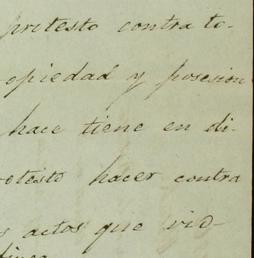 protesto contra to-
opiedad y posesion
hace tiene en di-
rotesto hacer contra
s actos que vio-
finca